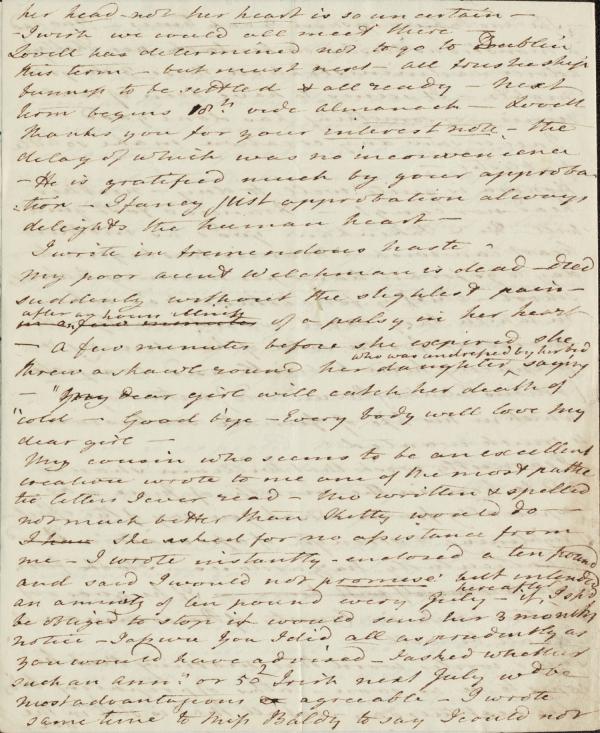 her head - not her heart is so uncertain -
- I wish we could all meet there -
Lovell has determined not to go to Dublin
this term - but must next - all trusteeship
business to be settled & all ready - Next
term begins 18th vide almanach - Lovell
thanks you for your interest note - the
delay of which was no inconvenience
- He is gratified much by your approba-
-tion - I fancy just approbation always
delights the human heart -
I write in tremendous haste -
My poor aunt Welchman is dead - Died
suddenly without the slightest pain -
after an hours illness
in a few minutes of a palsy in her heart
- A few minutes before she expired she
who was undressed by her bed
threw a shawl round her daughter, saying
- "My dear girl will catch her death of
"cold - Good bye - Every body will love my
dear girl -
My cousin who seems to be an excellent
creature wrote to me one of the most pathe
tic letters I ever read - tho written & spelled
not much better than Kitty would do -
I have She asked for no assistance from
me - I wrote instantly - enclosed a ten pound
and said I would not promise but intended
hereafter
an annuity of ten pound every July - if I shd
be obliged to stop it would send her 3 months
notice - I assure you I did all as prudently as
you would have advised - I asked whether
such an ann.y or 50£ Irish next July wd be
most advantageous or agreeable - I wrote
same time to Miss Baldy to say I could not